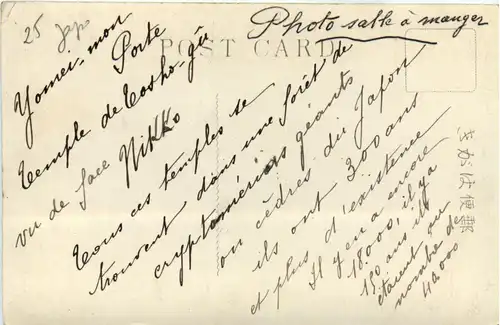 25 Jap
Photo salle à manger
POST CARD
Yomei-mon
Porte
Temple de Tosho-gû
vu de face Nikko
Tous ces temples se
trouvent dans une forêt de
cryptomérias géants
ou cèdres du Japon
ils ont 300 ans
et plus d'existence
Il y en a encore
18.000, il y a
150 ans ils
étaient au
nombre de
40000
きがは便郵